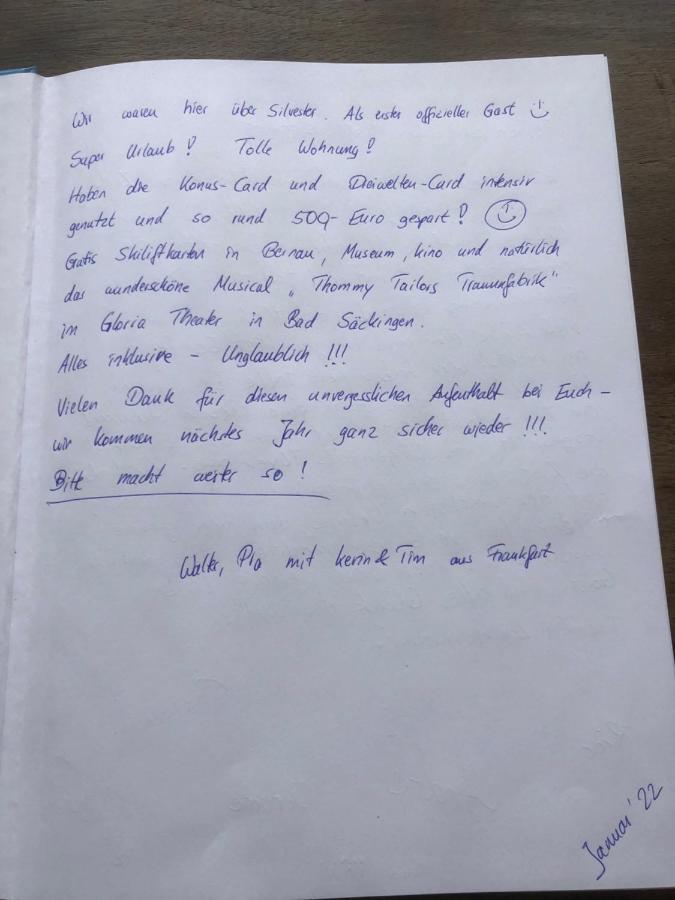 Wir waren hier über Silvester. Als erster offizieller Gast
Super Urlaub! Tolle Wohnung!
Haben die Konus-Card und Dreiwelten-Card intensiv
genutzt und so rund 500,- Euro gespart!
Gratis Skiliftkarten in Bernau, Museum, Kino und natürlich
das wunderschöne Musical „Thommy Tailors Traumfabrik"
im Gloria Theater in Bad Säckingen.
Alles inklusive - Unglaublich!!!
Vielen Dank für diesen unvergesslichen Aufenthalt bei Euch -
wir kommen nächstes Jahr ganz sicher wieder!!!
Bitte macht weiter so!
Walter, Pia mit Kerin & Tim aus Frankfurt
Januar '22